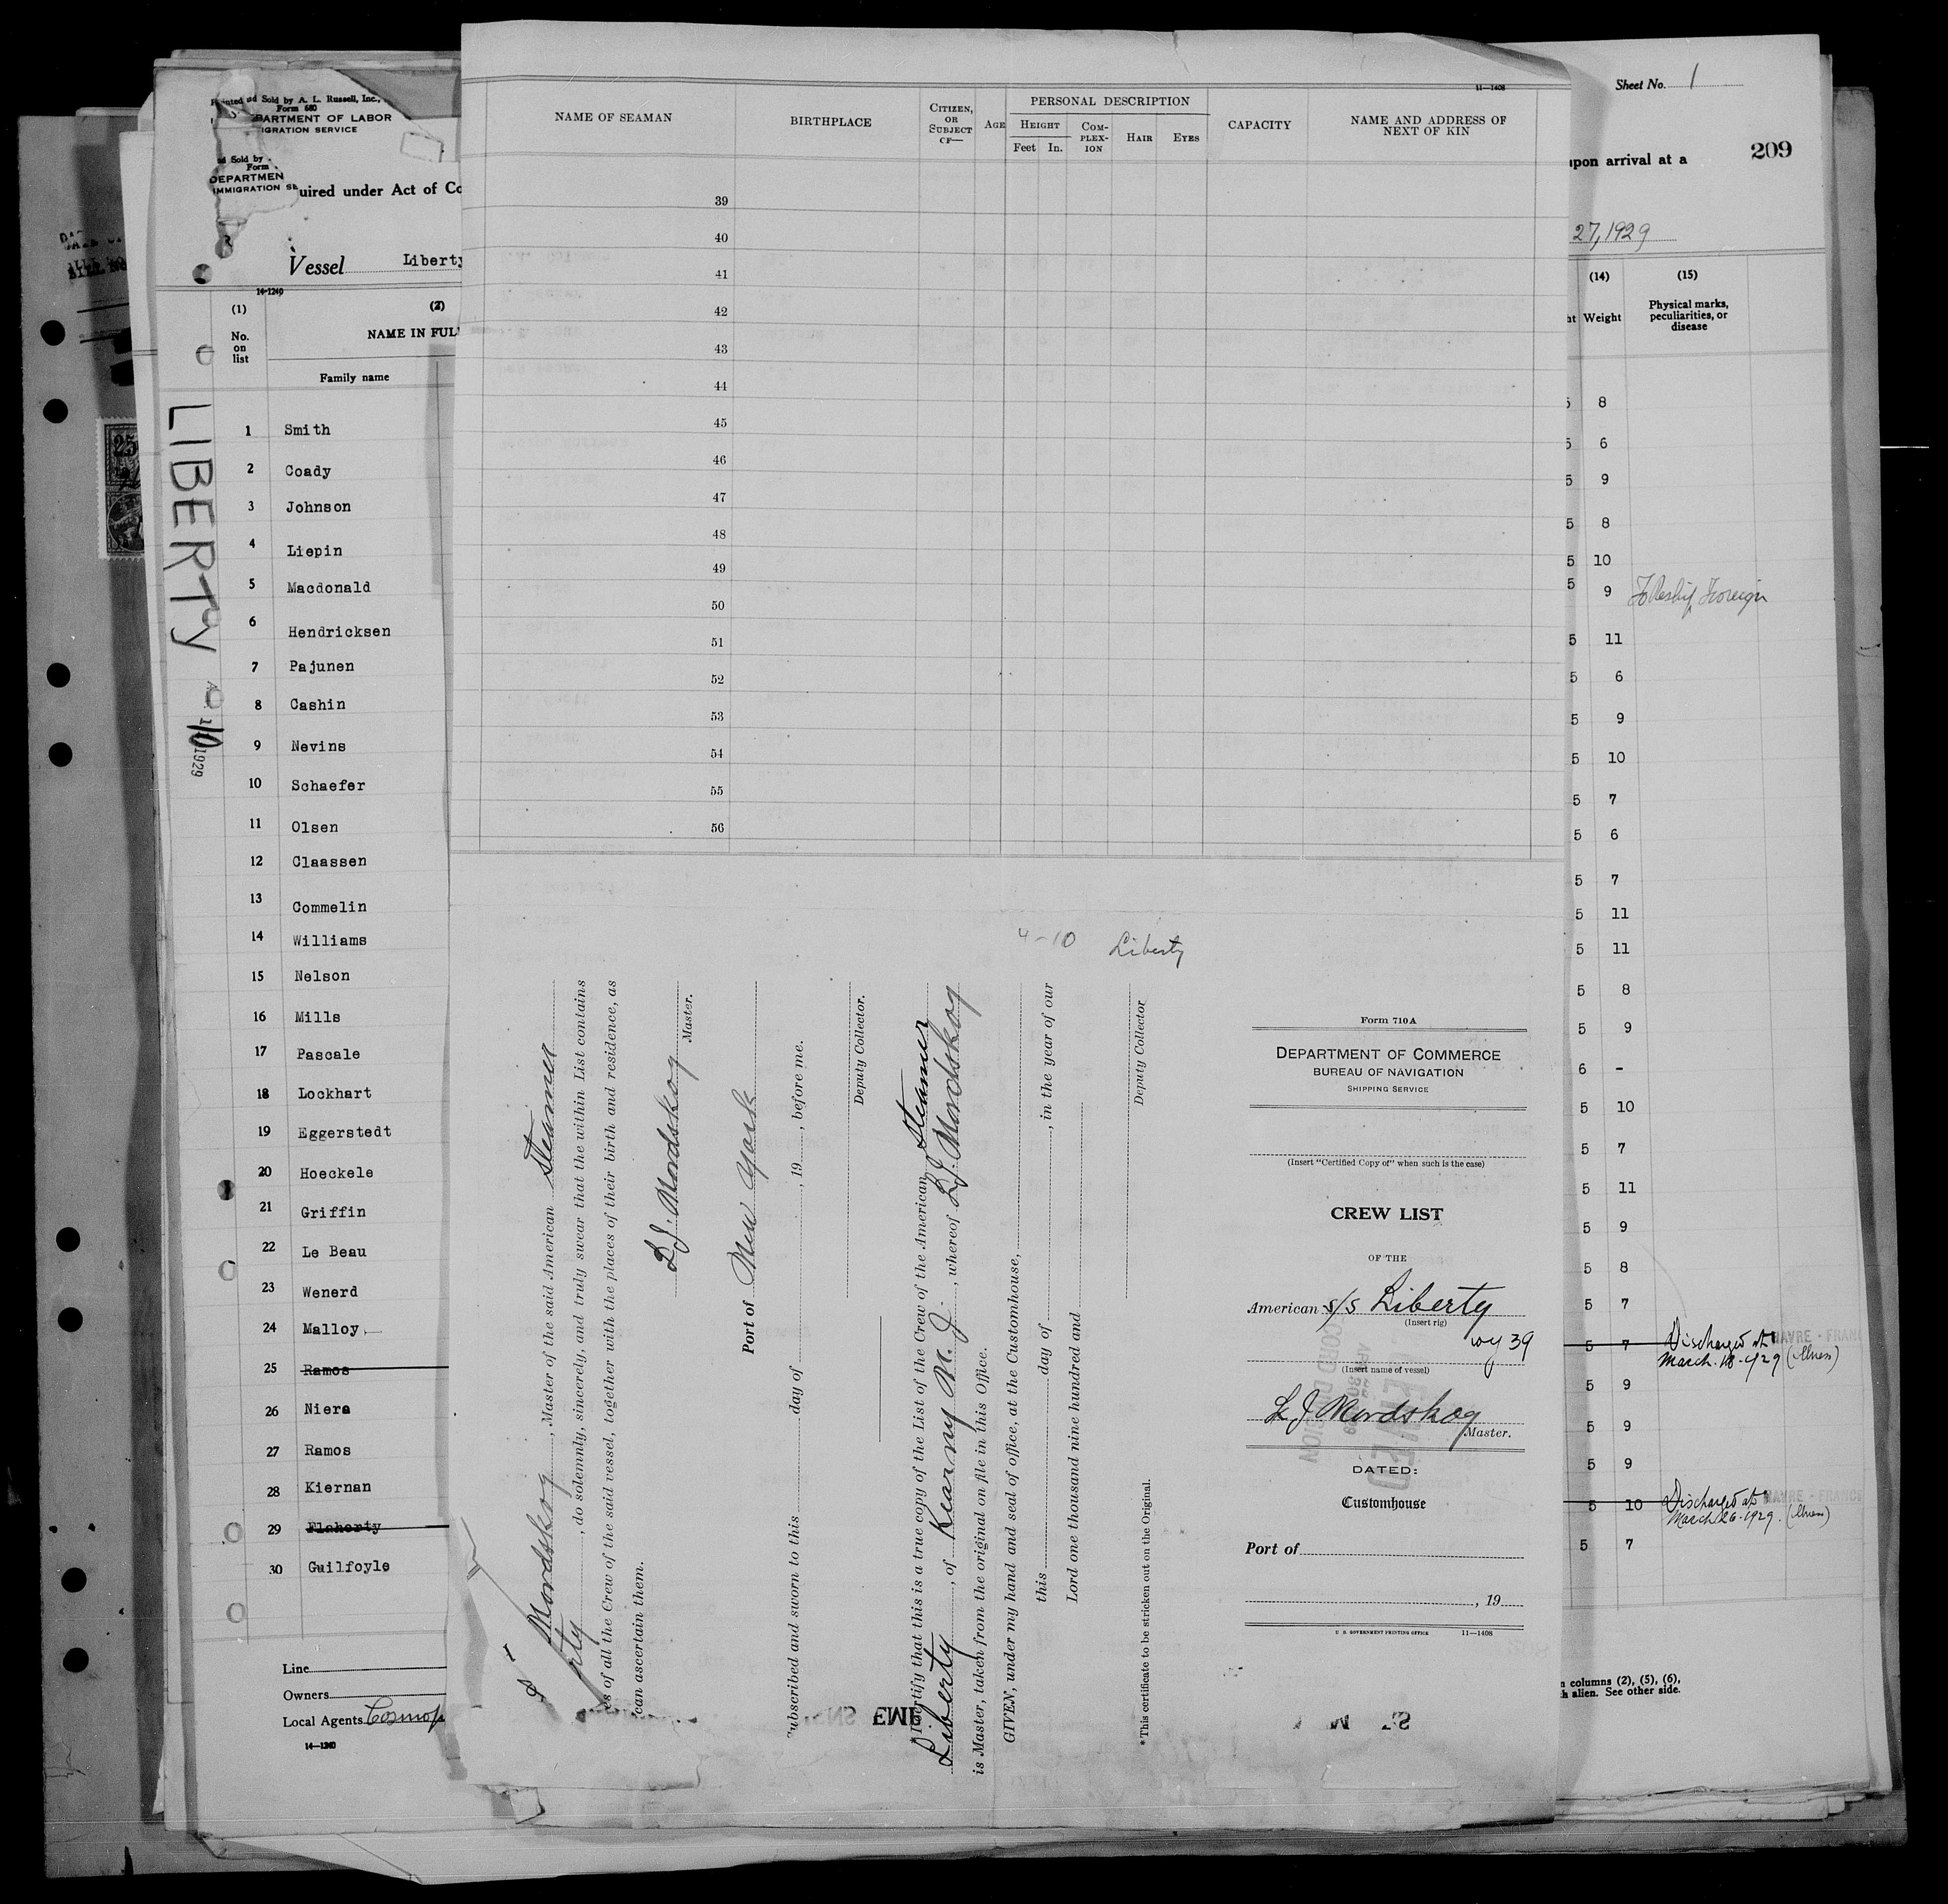 Sheet No. 1
209
upon arrival at a
27, 1929
Sold by A. L. Russell, Inc.,
Form 680
DEPARTMENT OF LABOR
IGRATION SERVICE
Sold by
Form
DEPARTMEN
IMMIGRATION SE
uired under Act of Co
Vessel Liberty
14-1240
(1)
(2)
No.
on
list
NAME IN FULL
Family name
LIBERTY
1929
1 Smith
2 Coady
3 Johnson
4 Liepin
5 Macdonald
6 Hendricksen
7 Pajunen
8 Cashin
9 Nevins
10 Schaefer
11 Olsen
12 Claassen
13 Commelin
14 Williams
15 Nelson
16 Mills
17 Pascale
18 Lockhart
19 Eggerstedt
20 Hoeckele
21 Griffin
22 Le Beau
23 Wenerd
24 Malloy
25 Ramos
26 Niera
27 Ramos
28 Kiernan
29 Flaherty
30 Guilfoyle
Line
Owners
Local Agents
14—1240
25
11—1408
NAME OF SEAMAN
BIRTHPLACE
CITIZEN,
OR
SUBJECT
OF—
AGE
PERSONAL DESCRIPTION
HEIGHT
Feet In.
COM-
PLEX-
ION
HAIR
EYES
CAPACITY
NAME AND ADDRESS OF
NEXT OF KIN
39
40
41
42
43
44
45
46
47
48
49
50
51
52
53
54
55
56
4-10 Liberty
L J. Nordskog, Master of the said American Steamer
rty, do solemnly, sincerely, and truly swear that the within List contains
es of all the Crew of the said vessel, together with the places of their birth and residence, as
can ascertain them.
L J. Nordskog
Master.
Port of New York
ubscribed and sworn to this day of , 19 , before me.
Deputy Collector.
*I certify that this is a true copy of the List of the Crew of the American Steamer
Liberty, of Kearny N. J., whereof L J. Nordskog
is Master, taken from the original on file in this Office.
GIVEN, under my hand and seal of office, at the Customhouse,
this day of , in the year of our
Lord one thousand nine hundred and
Deputy Collector
*This certificate to be stricken out on the Original.
Form 710A
DEPARTMENT OF COMMERCE
BUREAU OF NAVIGATION
SHIPPING SERVICE
(Insert "Certified Copy of" when such is the case)
CREW LIST
OF THE
American s/s Liberty
(Insert rig)
wy 39
(Insert name of vessel)
L J Nordskog
Master.
DATED:
Customhouse
Port of
, 19
U. S. GOVERNMENT PRINTING OFFICE 11—1408
(14)
(15)
ht Weight
Physical marks,
peculiarities, or
disease
5 8
5 6
5 9
5 8
5 10
5 9 To Reship Foreign
5 11
5 6
5 9
5 10
5 7
5 6
5 7
5 11
5 11
5 8
5 9
6 -
5 10
5 7
5 11
5 9
5 8
5 7
5 7 Discharged at HAVRE - FRANC
March. 18 - 1929 (illness)
5 9
5 9
5 9
5 10 Discharged at HAVRE - FRANCE
March 26 - 1929. (illness)
5 7
n columns (2), (5), (6),
h alien. See other side.